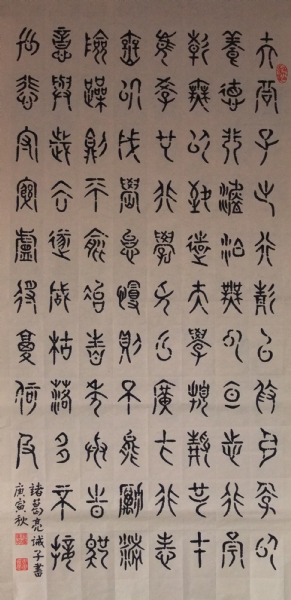 夫君子之行靜以修身儉以
養德非澹泊無以明志非寧
靜無以致遠夫學須靜也才
須學也非學無以廣才非志
無以成學慢則不能勵精
險躁則不能治性年與時馳
意與歲去遂成枯落多不接
世悲守窮廬將復何及
諸葛亮誡子書
庚寅秋